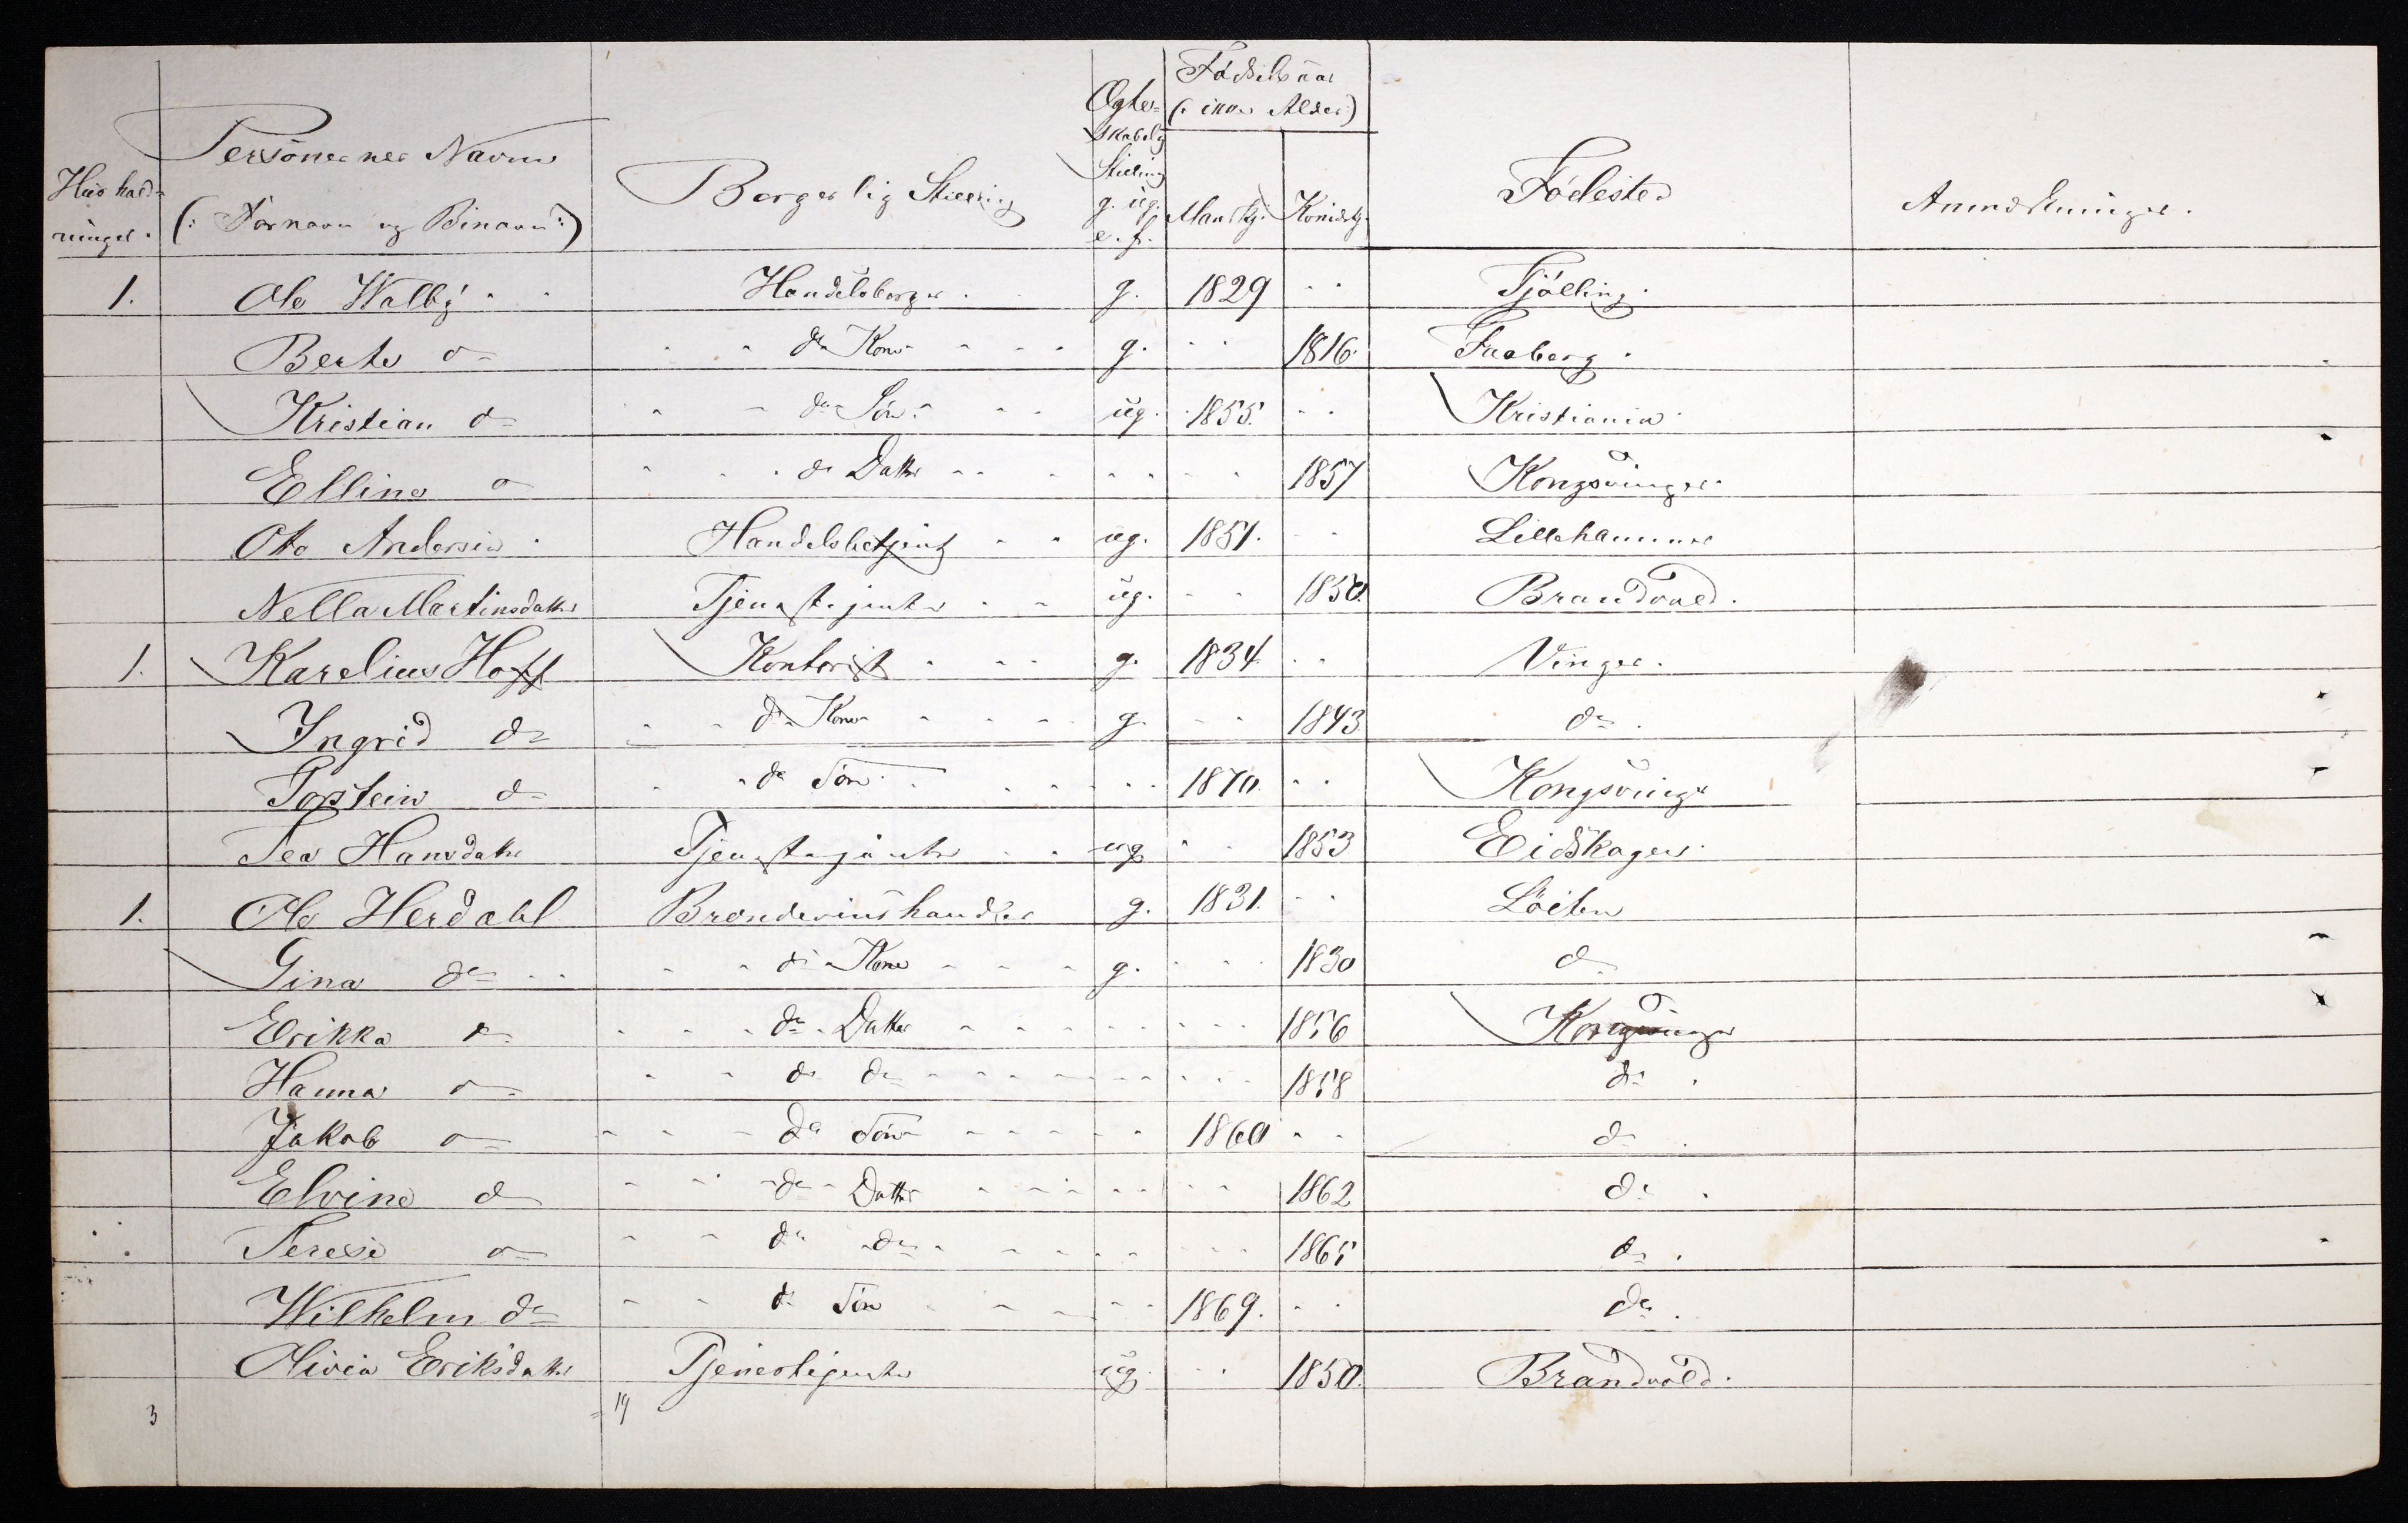 Hushold- Personernes Navne Borgerlig Stilling Ægte- Fødselsaar Fødested Anmærkninger.
ninger. (: Fornavn og Binavn :) skabelig (: ikke Alder)
Stilling
g. ug. Mandkj. Kvindekj.
e. f.
1. Ole Walby Handelsborger g. 1829 Tjølling.
Berte do do Kone g. 1816 Faaberg.
Kristian do do Søn ug. 1855. Kristiania
Elline do do Datter 1857 Kongsvinger
Otto Andersen Handelsbetjent ug. 1851. Lillehammer
Nella Martinsdatter Tjenestejente ug. 1850. Brandvold.
1. Karelius Hoff Kontorist g. 1834. Vinger.
Ingrid do do Kone g. 1843 do.
Torstein do do Søn 1870. Kongsvinger
Tea Hansdatter Tjenestejente ug 1853 Eidskogen
1. Ole Herdahl Brændevinshandler g. 1831. Løiten
Gina do do Kone g. 1830 do
Erikka do do Datter 1856 Kongsvinger
Hanna do do do 1858 do.
Jakob do do Søn 1860 do.
Elvine do do Datter 1862 do.
Terese do do do 1865 do.
Wilhelm do do Søn 1869. do.
Olivia Eriksdatter Tjenestejente ug. 1850. Brandvold.
3 = 19